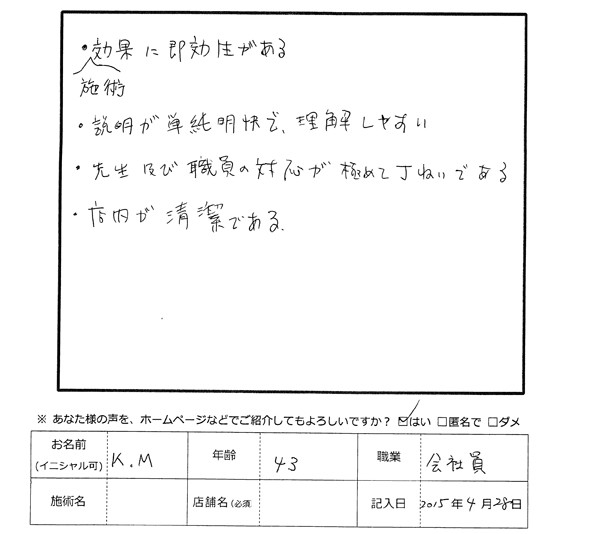 ・効果に即効性がある
施術
・説明が単純明快で、理解しやすい
・先生及び職員の対応が極めて丁ねいである
・店内が清潔である.
※ あなた様の声を、ホームページなどでご紹介してもよろしいですか? ☑はい □匿名で □ダメ
お名前 (イニシャル可) K.M 年齢 43 職業 会社員
施術名 店舗名(必須) 記入日 2015年4月28日